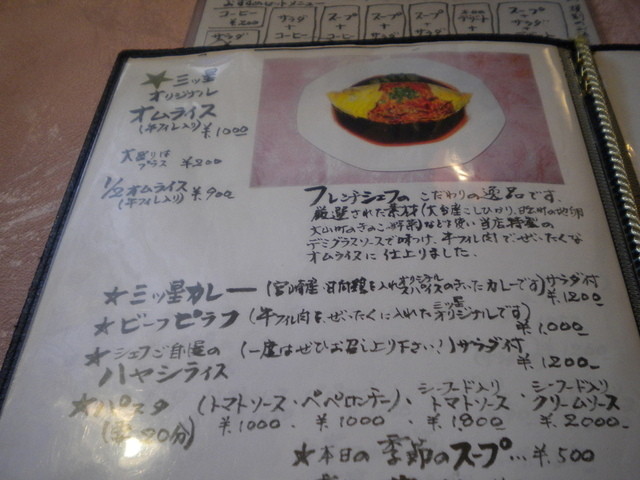 コーヒー ¥200
サラダ + コーヒー
スープ + コーヒー
スープ + サラダ
★三ッ星
オリジナル
オムライス
(牛フィレ入り) ¥1000
大盛りは
プラス ¥200
1/2オムライス ¥900
(牛フィレ入り)
フレンチシェフの こだわりの逸品です。
厳選された素材
デミグラスソースで味つけ、牛フィレ肉でぜいたくな
オムライスに仕上りました。
★三ッ星カレー(宮崎産 日向鶏を入れオリジナルスパイスのきいたカレーです)サラダ付
¥1200
★ビーフピラフ(牛フィレ肉をぜいたくに入れた三ッ星オリジナルです)
¥1000
★シェフご自慢の (一度はぜひお召し上り下さい!)サラダ付
ハヤシライス ¥1200
★パスタ (トマトソース・ペペロンチーノ・シーフード入りトマトソース・シーフード入りクリームソース
¥1000 ・ ¥1000 ・ ¥1800 ¥2000
★本日の季節のスープ…¥500